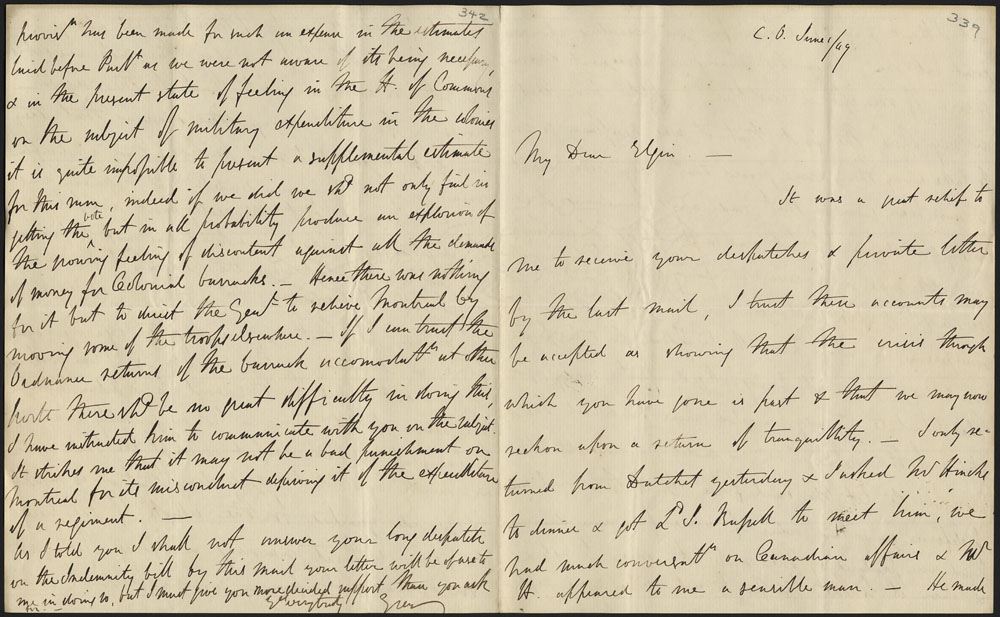 342
provisn has been made for such an expense in the estimates
laid before Parlt as we were not aware of its being necessary,
& in the present state of feeling in the H. of Commons
on the subject of military expenditure in the colonies
it is quite impossible to present a supplemental estimate
for this sum, indeed if we did we shd not only fail in
getting the vote but in all probability produce an explosion of
the growing feeling of discontent against all the demands
of money for Colonial barracks. — Hence there was nothing
for it but to direct the Genl to relieve Montreal by
moving some of the troops elsewhere. — If I can trust the
Ordnance returns of the barrack accomodattn at other
ports there shd be no great difficulty in doing this,
I have instructed him to communicate with you on the subject.
It strikes me that it may not be a bad punishment on
Montreal for its misconduct depriving it of the expenditure
of a regiment. —
As I told you I shall not answer your long despatch
on the Indemnity bill by this mail your letter will be of use to
me in doing so, but I must give you more decided support than you ask
for. —
Grey
339
C. O. June 1/49
My Dear Elgin —
It was a great relief to
me to receive your despatches & private letter
by the last mail, I trust these accounts may
be accepted as showing that the crisis through
which you have gone is past & that we may now
reckon upon a return of tranquillity. — I only re-
turned from Datchet yesterday & I asked Mr Hincks
to dinner & got Ld J. Russell to meet him, we
had much conversatn on Canadian affairs & Mr
H. appeared to me a sensible man. — He made